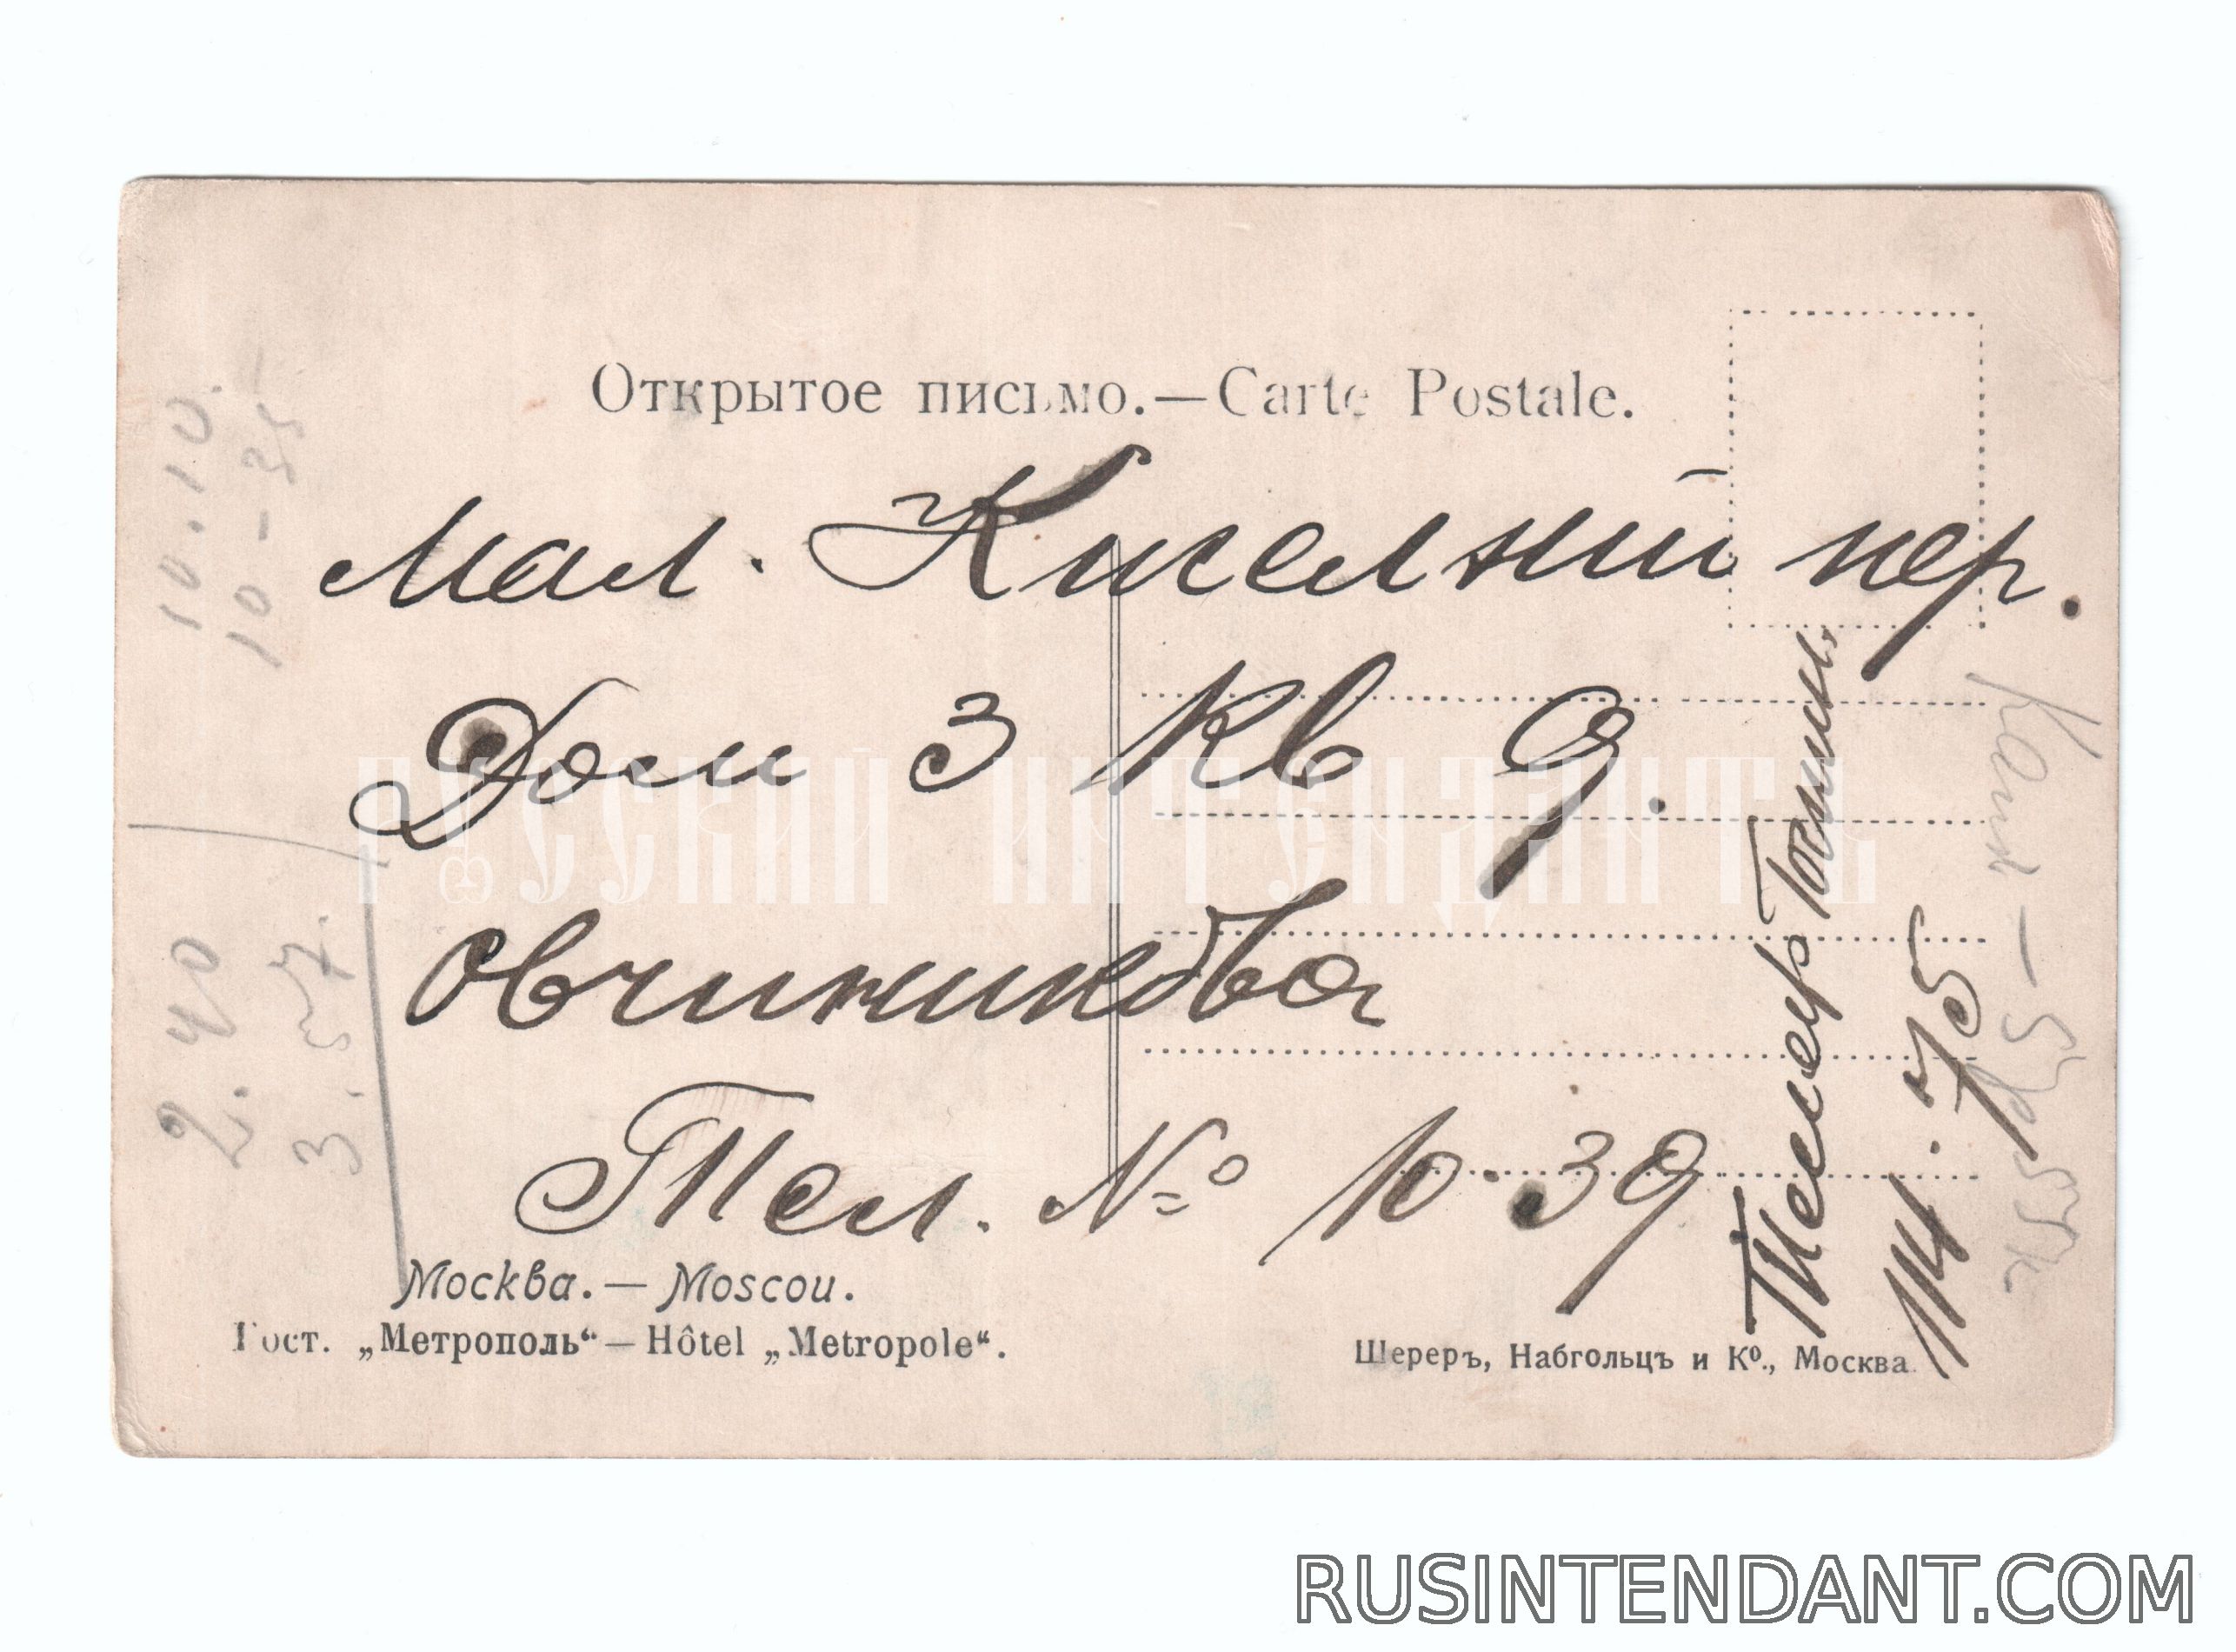 Открытое письмо.—Carte Postale.
Мал. Киселний пер.
Дом 3 Кв 9.
Овчинникова
Тел. № 10.39
Москва.— Moscou.
Гост. „Метрополь“— Hôtel „Metropole“.
Шереръ, Набгольцъ и Ко., Москва.
10.10.
10-35
2.40
3.57.
75
РУССКИЙ ИНТЕНДАНТЪ
RUSINTENDANT.COM